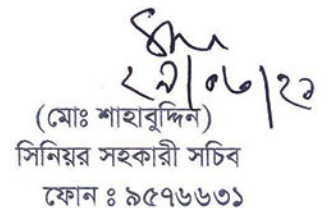 (মোঃ শাহাবুদ্দিন)
সিনিয়র সহকারী সচিব
ফোন ঃ ৯৫৭৬৬৩১